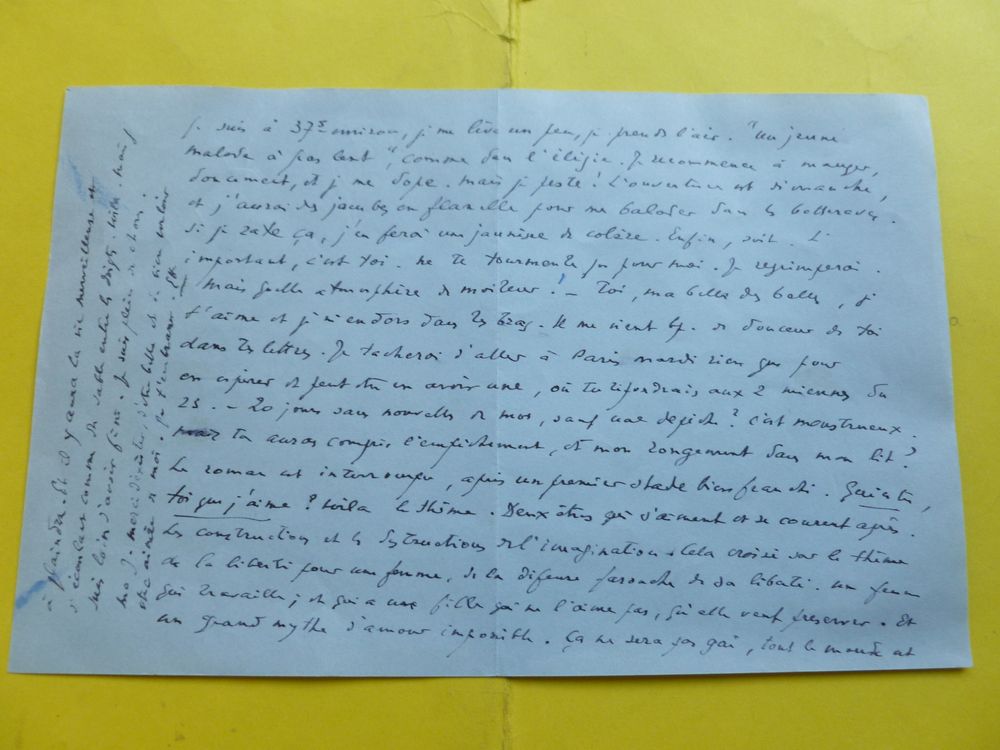 Je suis à 37 5 environ, je me lève un peu, je prends l'air. "Un jeune
malade à pas lents", comme dans l'élégie. Je recommence à manger,
doucement, et je me dope. Mais je peste ! L'ouverture est dimanche,
et j'aurai des jambes en flanelle pour me balader dans les betteraves.
Si je rate ça, j'en ferai une jaunisse de colère. Enfin, soit. L'
important, c'est toi. Ne te tourmente pas pour moi. Je regrimperai.
Mais quelle atmosphère de moiteur ! – Toi, ma belle des belles, je
t'aime et je m'endors dans tes bras. Il me vient bp. de douceur de toi
dans tes lettres. Je tacherai d'aller à Paris mardi rien que pour
en espérer et peut être en avoir une, où tu répondrais aux 2 miennes du
25. – 20 jours sans nouvelles de moi, sauf une dépêche ? C'est monstrueux.
tu auras compris l'empêchement, et mon rongement dans mon lit ?
Le roman est interrompu, après un premier stade bien franchi. Qui es tu,
toi que j'aime ? Voilà le thème. Deux êtres qui s'aiment et se courent après.
Les constructions et les destructions de l'imagination. Cela croisé sur le thème
de la liberté pour une femme, de la défense farouche de sa liberté. Une femme
qui travaille ; et qui a une fille qui ne l'aime pas, qu'elle veut préserver. Et
un grand mythe d'amour impossible. Ça ne sera pas gai, tout le monde est
à plaindre. Et il y aura la vie merveilleuse et
s'écoulant comme du sable entre les doigts. Voilà. Mais je
suis loin d'avoir fini. Je suis plein de choses.
mo J. merci d'exister, d'être belle et si bien vouloir
être aimée de moi. Je t'embrasse.